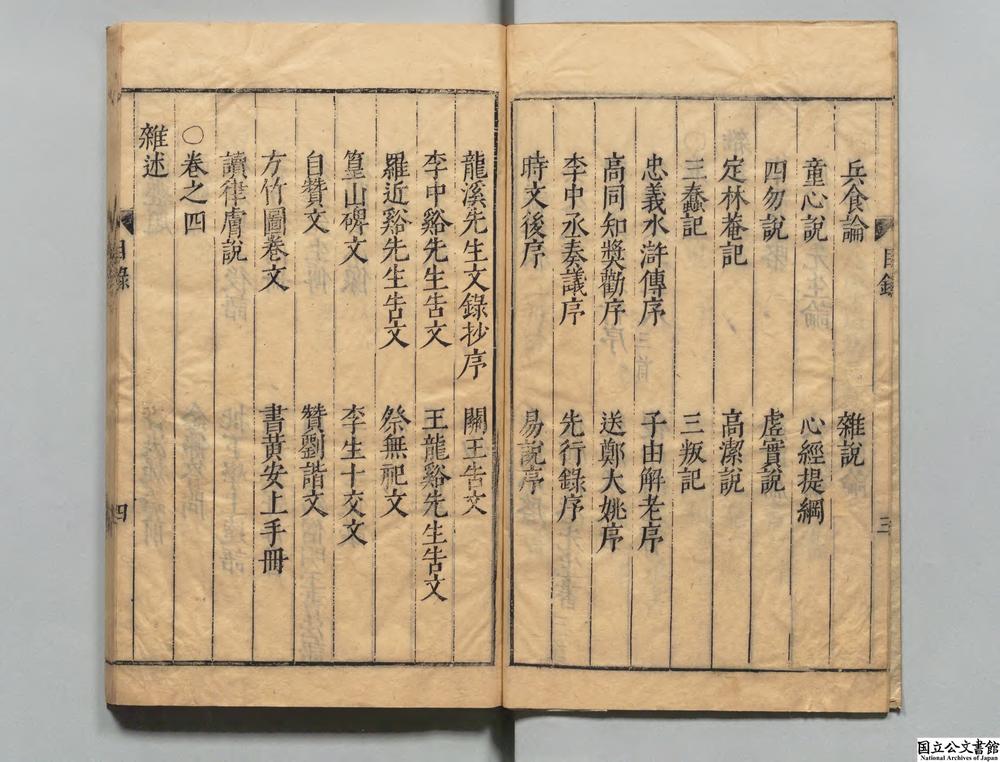 兵食論 雜說
童心說 心經提綱
四勿說 虛實說
定林菴記 高潔說
三蠢記 三叛記
忠義水滸傳序 子由解老序
高同知獎勸序 送鄭大姚序
李中丞奏議序 先行錄序
時文後序 易說序
目錄 三
龍溪先生文錄抄序 關王告文
李中谿先生告文 王龍谿先生告文
羅近谿先生告文 祭無祀文
篁山碑文 李生十交文
自贊文 贊劉諧文
方竹圖卷文 書黃安上手冊
讀律膚說
○卷之四
雜述
目錄 四
国立公文書館
National Archives of Japan